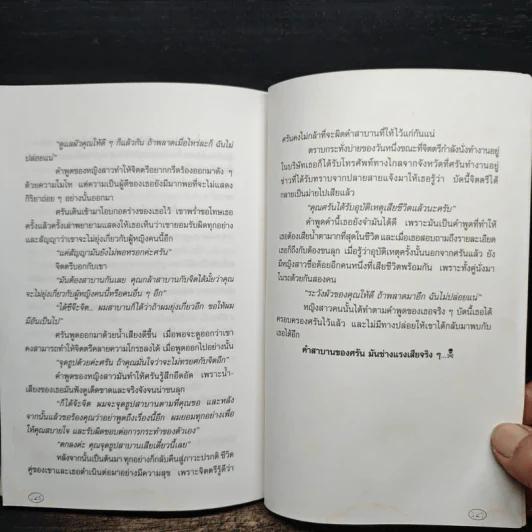 "ดูแลผัวคุณให้ดี ๆ ก็แล้วกัน ถ้าพลาดเมื่อไหร่ละก็ ฉันไม่
ปล่อยแน่"
คำพูดของหญิงสาวทำให้จิตตรีอยากกรีดร้องออกมาดัง ๆ
ด้วยความโมโห แต่ความเป็นผู้ดีของเธอยังมีมากพอที่จะไม่แสดง
กิริยาถ่อย ๆ อย่างนั้นออกมา
ศรันเดินเข้ามาโอบกอดร่างของเธอไว้ เขาพร่ำขอโทษเธอ
ครั้งแล้วครั้งเล่าพยายามแสดงให้เธอเห็นว่าเขายอมรับผิดทุกอย่าง
และสัญญาว่าเขาจะไม่ยุ่งเกี่ยวกับผู้หญิงคนนี้อีก
"แค่สัญญามันยังไม่พอหรอกค่ะศรัน"
จิตตรีบอกกับเขา
"มันต้องสาบานกันเลย คุณกล้าสาบานกับจิตได้มั้ยว่าคุณ
จะไม่ยุ่งเกี่ยวกับผู้หญิงคนนี้หรือคนอื่น ๆ อีก"
"ได้ซีจ๊ะจิต.. ผมสาบานก็ได้ว่าถ้าผมยุ่งเกี่ยวอีก ขอให้ผม
มีอันเป็นไป"
ศรันพูดออกมาด้วยน้ำเสียงดีขึ้น เมื่อพอจะดูออกว่าเขา
คงสามารถทำให้จิตตรีคลายความโกรธลงได้ เมื่อพูดออกไปอย่างนั้น
"จุดธูปด้วยค่ะศรัน ถ้าคุณมั่นใจว่าจะไม่ทรยศกับจิตอีก"
คำพูดของหญิงสาวมันทำให้ศรันรู้สึกอึดอัด เพราะน้ำ-
เสียงของเธอมันฟังดูเด็ดขาดและจริงจังจนน่าขนลุก
"ก็ได้จ้ะจิต ผมจะจุดธูปสาบานตามที่คุณขอ และหลัง
จากนั้นแล้วขอร้องคุณว่าอย่าพูดถึงเรื่องนี้อีก ผมยอมทุกอย่างเพื่อ
ให้คุณสบายใจ และรับผิดชอบต่อการกระทำของตัวเอง"
"ตกลงค่ะ คุณจุดธูปสาบานเสียเดี๋ยวนี้เลย"
หลังจากนั้นเป็นต้นมา ทุกอย่างก็กลับคืนสู่ภาวะปรกติ ชีวิต
คู่ของเขาและเธอดำเนินต่อมาอย่างมีความสุข เพราะจิตตรีรู้ดีว่า
ศรันคงไม่กล้าที่จะผิดคำสาบานที่ให้ไว้แก่กันแน่
ตราบกระทั่งบ่ายของวันหนึ่งขณะที่จิตตรีกำลังนั่งทำงานอยู่
ในบริษัทเธอก็ได้รับโทรศัพท์ทางไกลจากจังหวัดที่ศรันทำงานอยู่
ข่าวที่ได้รับทราบจากปลายสายแจ้งมาให้เธอรู้ว่า บัดนี้จิตตรีได้
กลายเป็นม่ายไปเสียแล้ว
"คุณศรันได้รับอุบัติเหตุเสียชีวิตแล้วนะครับ"
คำพูดคำนี้เธอยังจำมันได้ดี เพราะมันเป็นคำพูดที่ทำให้
เธอต้องเสียน้ำตามากที่สุดในชีวิต และเมื่อเธอสอบถามถึงรายละเอียด
เธอก็ถึงกับต้องขนลุก เมื่อรู้ว่าอุบัติเหตุครั้งนั้นนอกจากศรันแล้ว ยัง
มีหญิงสาวชื่อต้อยอีกคนหนึ่งที่เสียชีวิตพร้อมกัน เพราะทั้งคู่นั่งมา
ในรถด้วยกันสองคน
"ระวังผัวของคุณให้ดี ถ้าพลาดมาอีก ฉันไม่ปล่อยแน่"
หญิงสาวคนนั้นได้ทำตามคำพูดของเธอจริง ๆ บัดนี้เธอได้
ครอบครองศรันไว้แล้ว และไม่มีทางปล่อยให้เขาได้กลับมาพบกับ
เธอได้อีก
คำสาบานของศรัน มันช่างแรงเสียจริง ๆ...